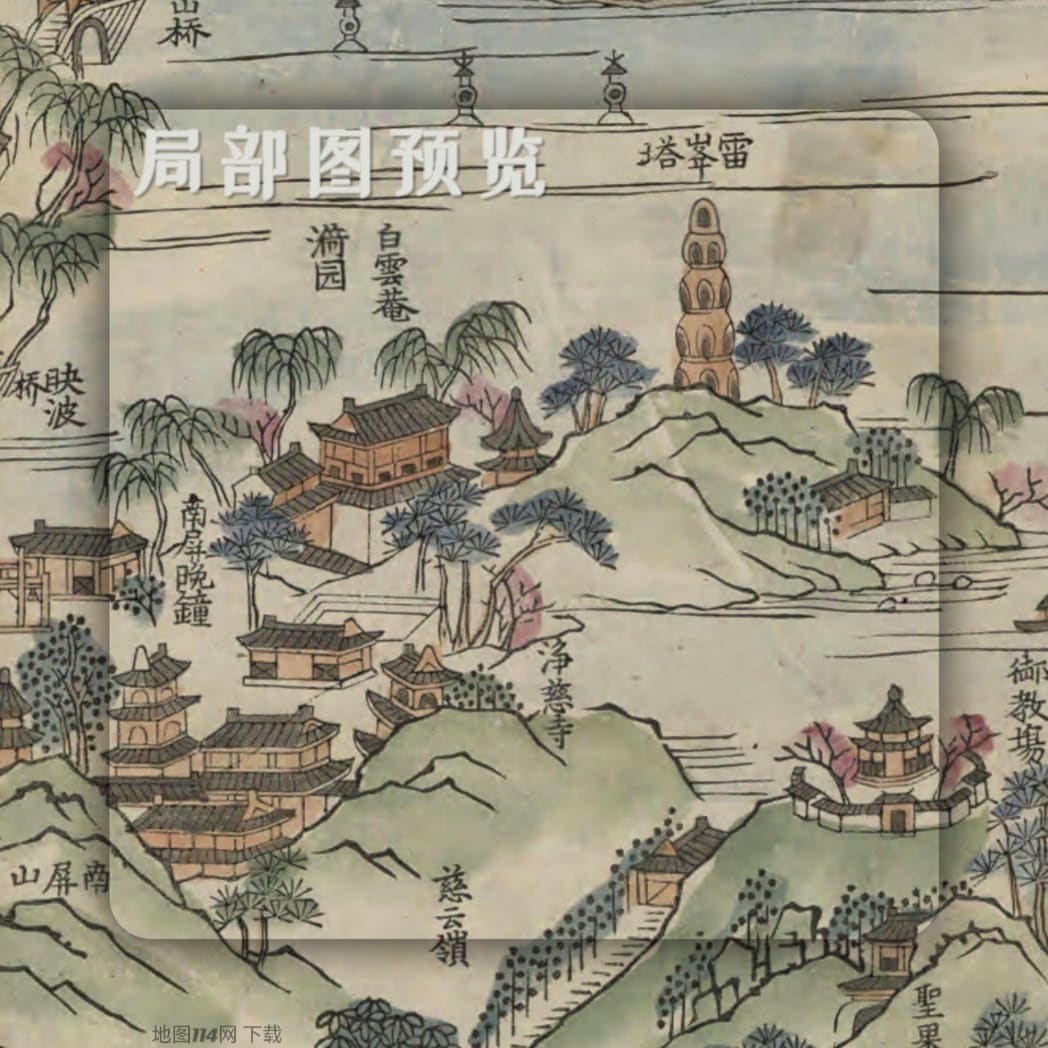 山桥
局部图预览
雷峯塔
白雲菴
漪园
映波
桥
南屏晚鐘
净慈寺
御教塲
南屏山
慈云嶺
聖果
地图114网 下载